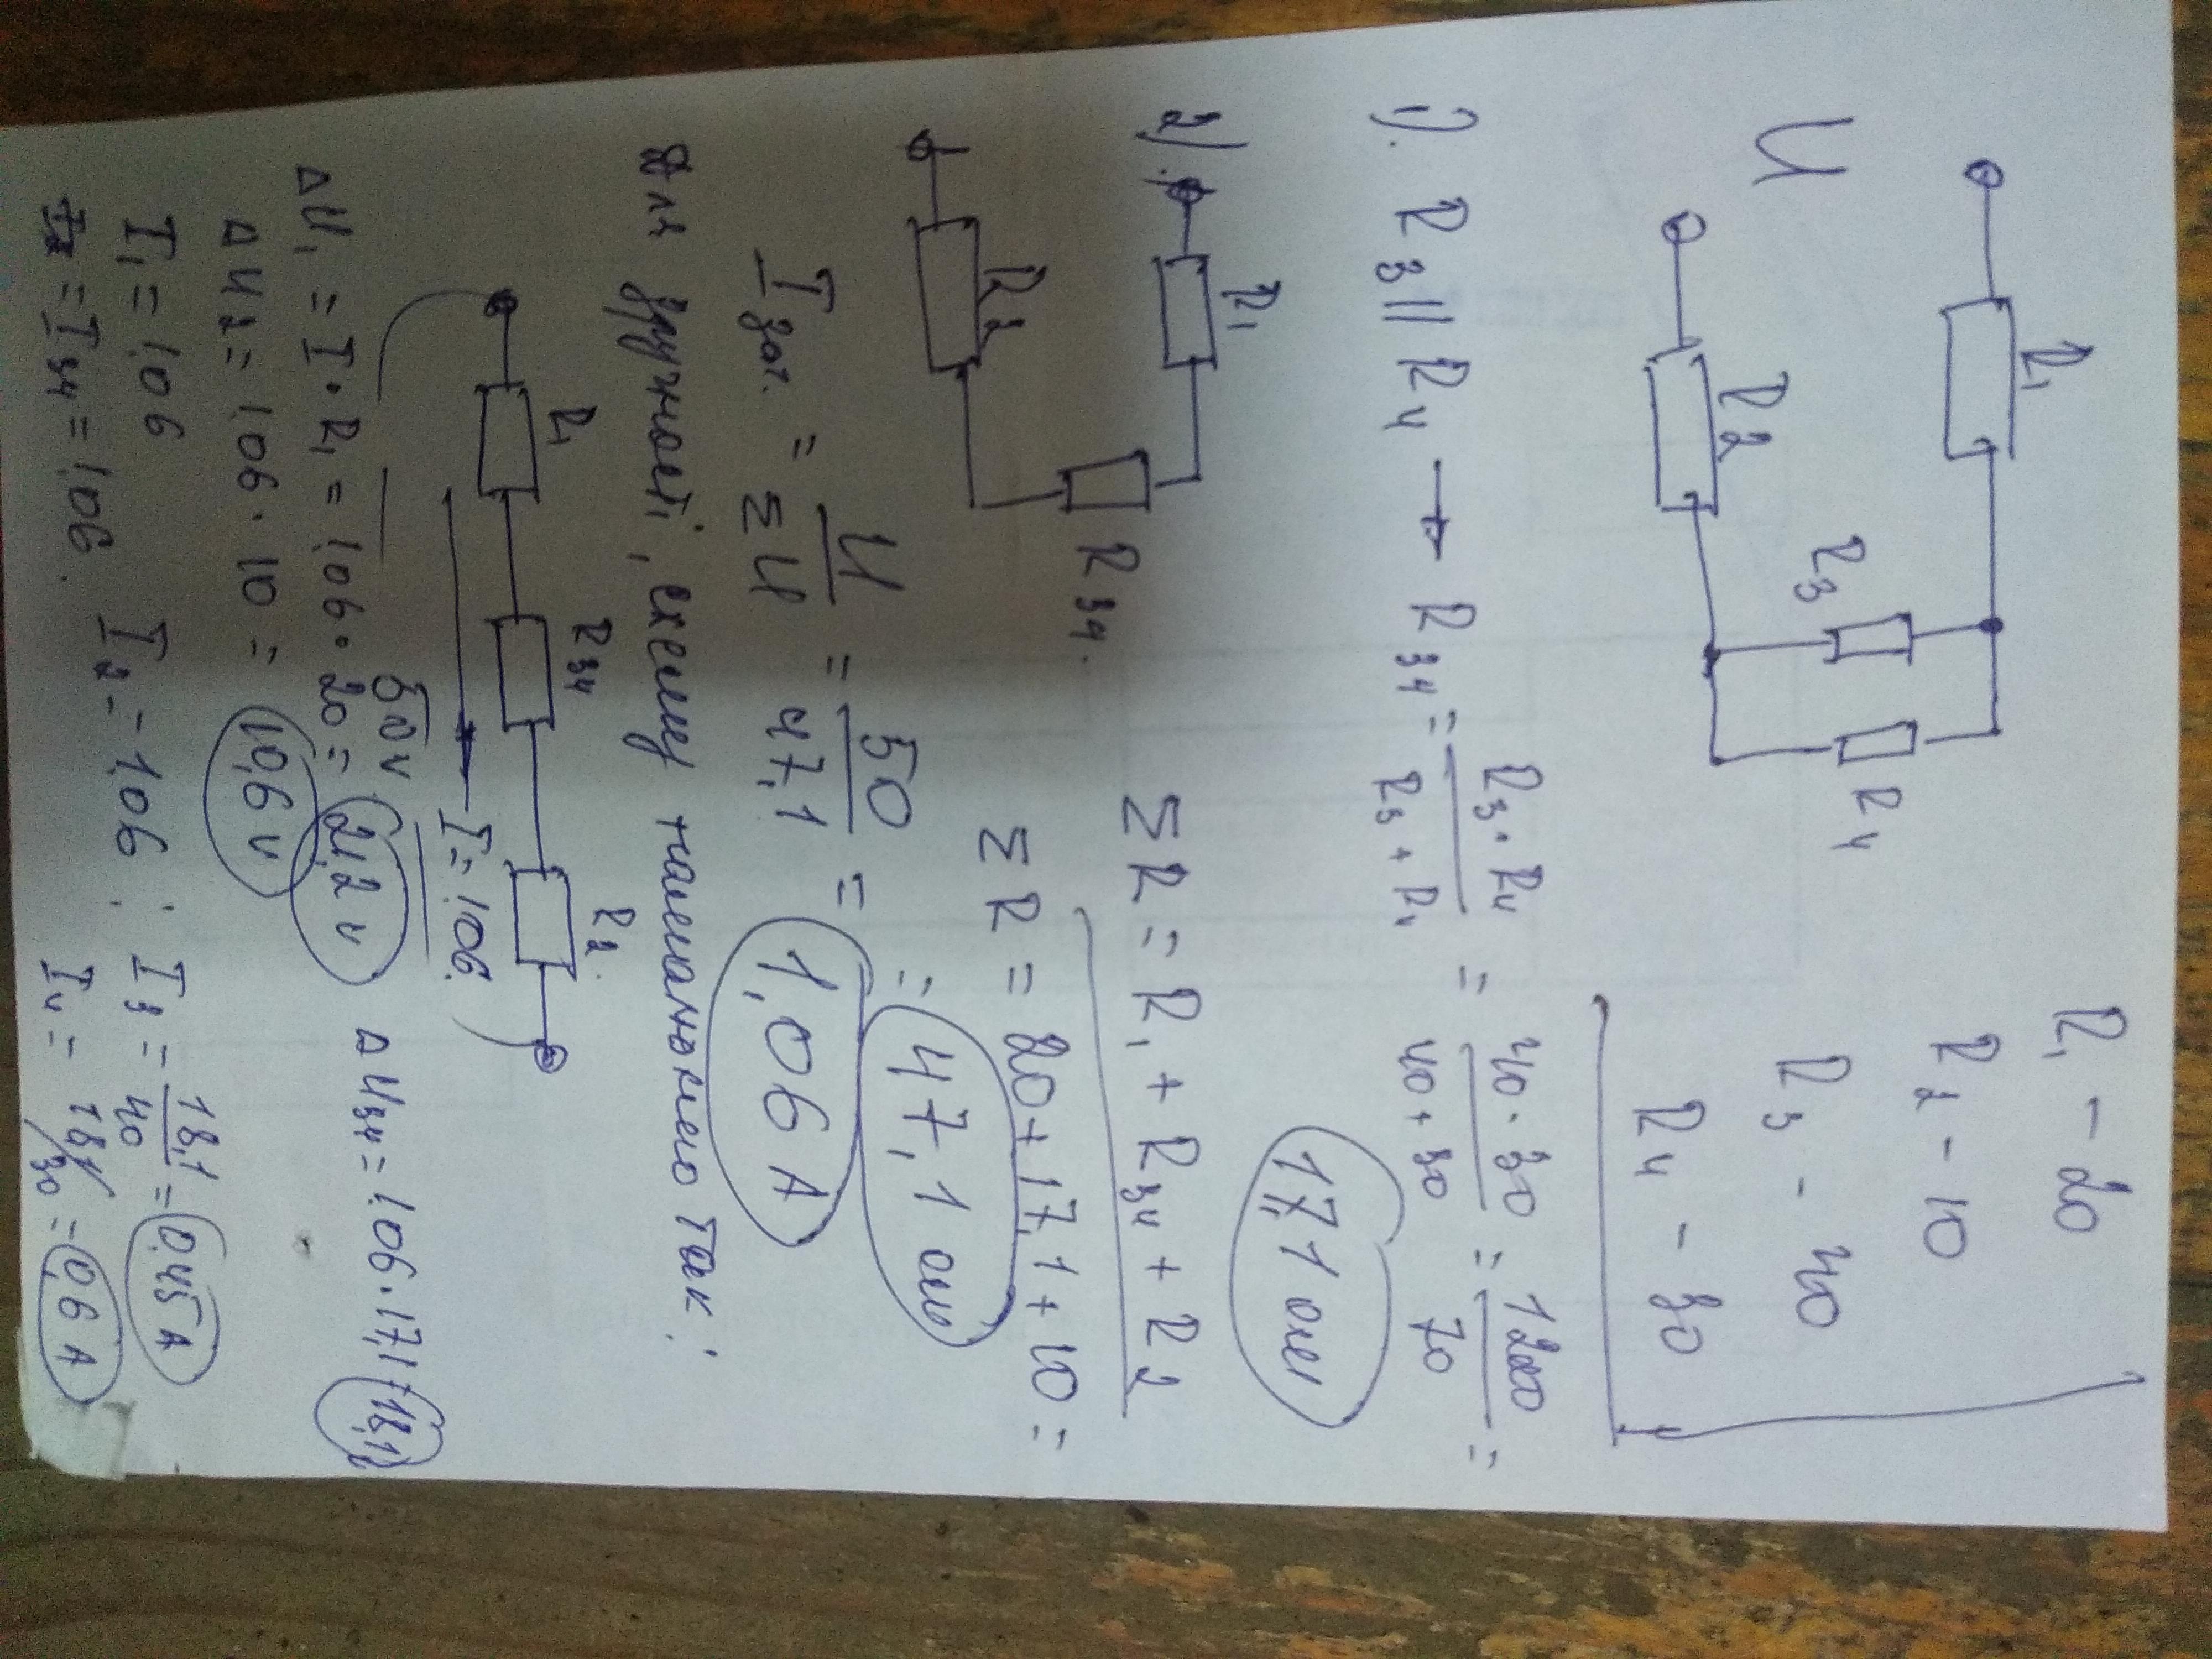 R1 - 20
R2 - 10
R3 - 40
R4 - 30
R1
U
R2
R3
R4
1). R3 || R4 → R34 = R3 · R4 / R3 + R4 = 40 · 30 / 40 + 30 = 1200 / 70 =
17,1 ом
2).
R1
R2
R34.
ΣR = R1 + R34 + R2
ΣR = 20 + 17,1 + 10 =
= 47,1 ом
I заг. = U / ΣU = 50 / 47,1 = 1,06 А
Для зручності, схему намалюємо так:
R1
R34
R2
I = 1,06.
50 v
ΔU1 = I · R1 = 1,06 · 20 = 21,2 v
ΔU34 = 1,06 · 17,1 = 18,1
ΔU2 = 1,06 · 10 = 10,6 v
I1 = 1,06
I2 = 1,06 ;
I3 = 18,1 / 40 = 0,45 А
I34 = 1,06.
I4 = 18,1 / 30 = 0,6 А